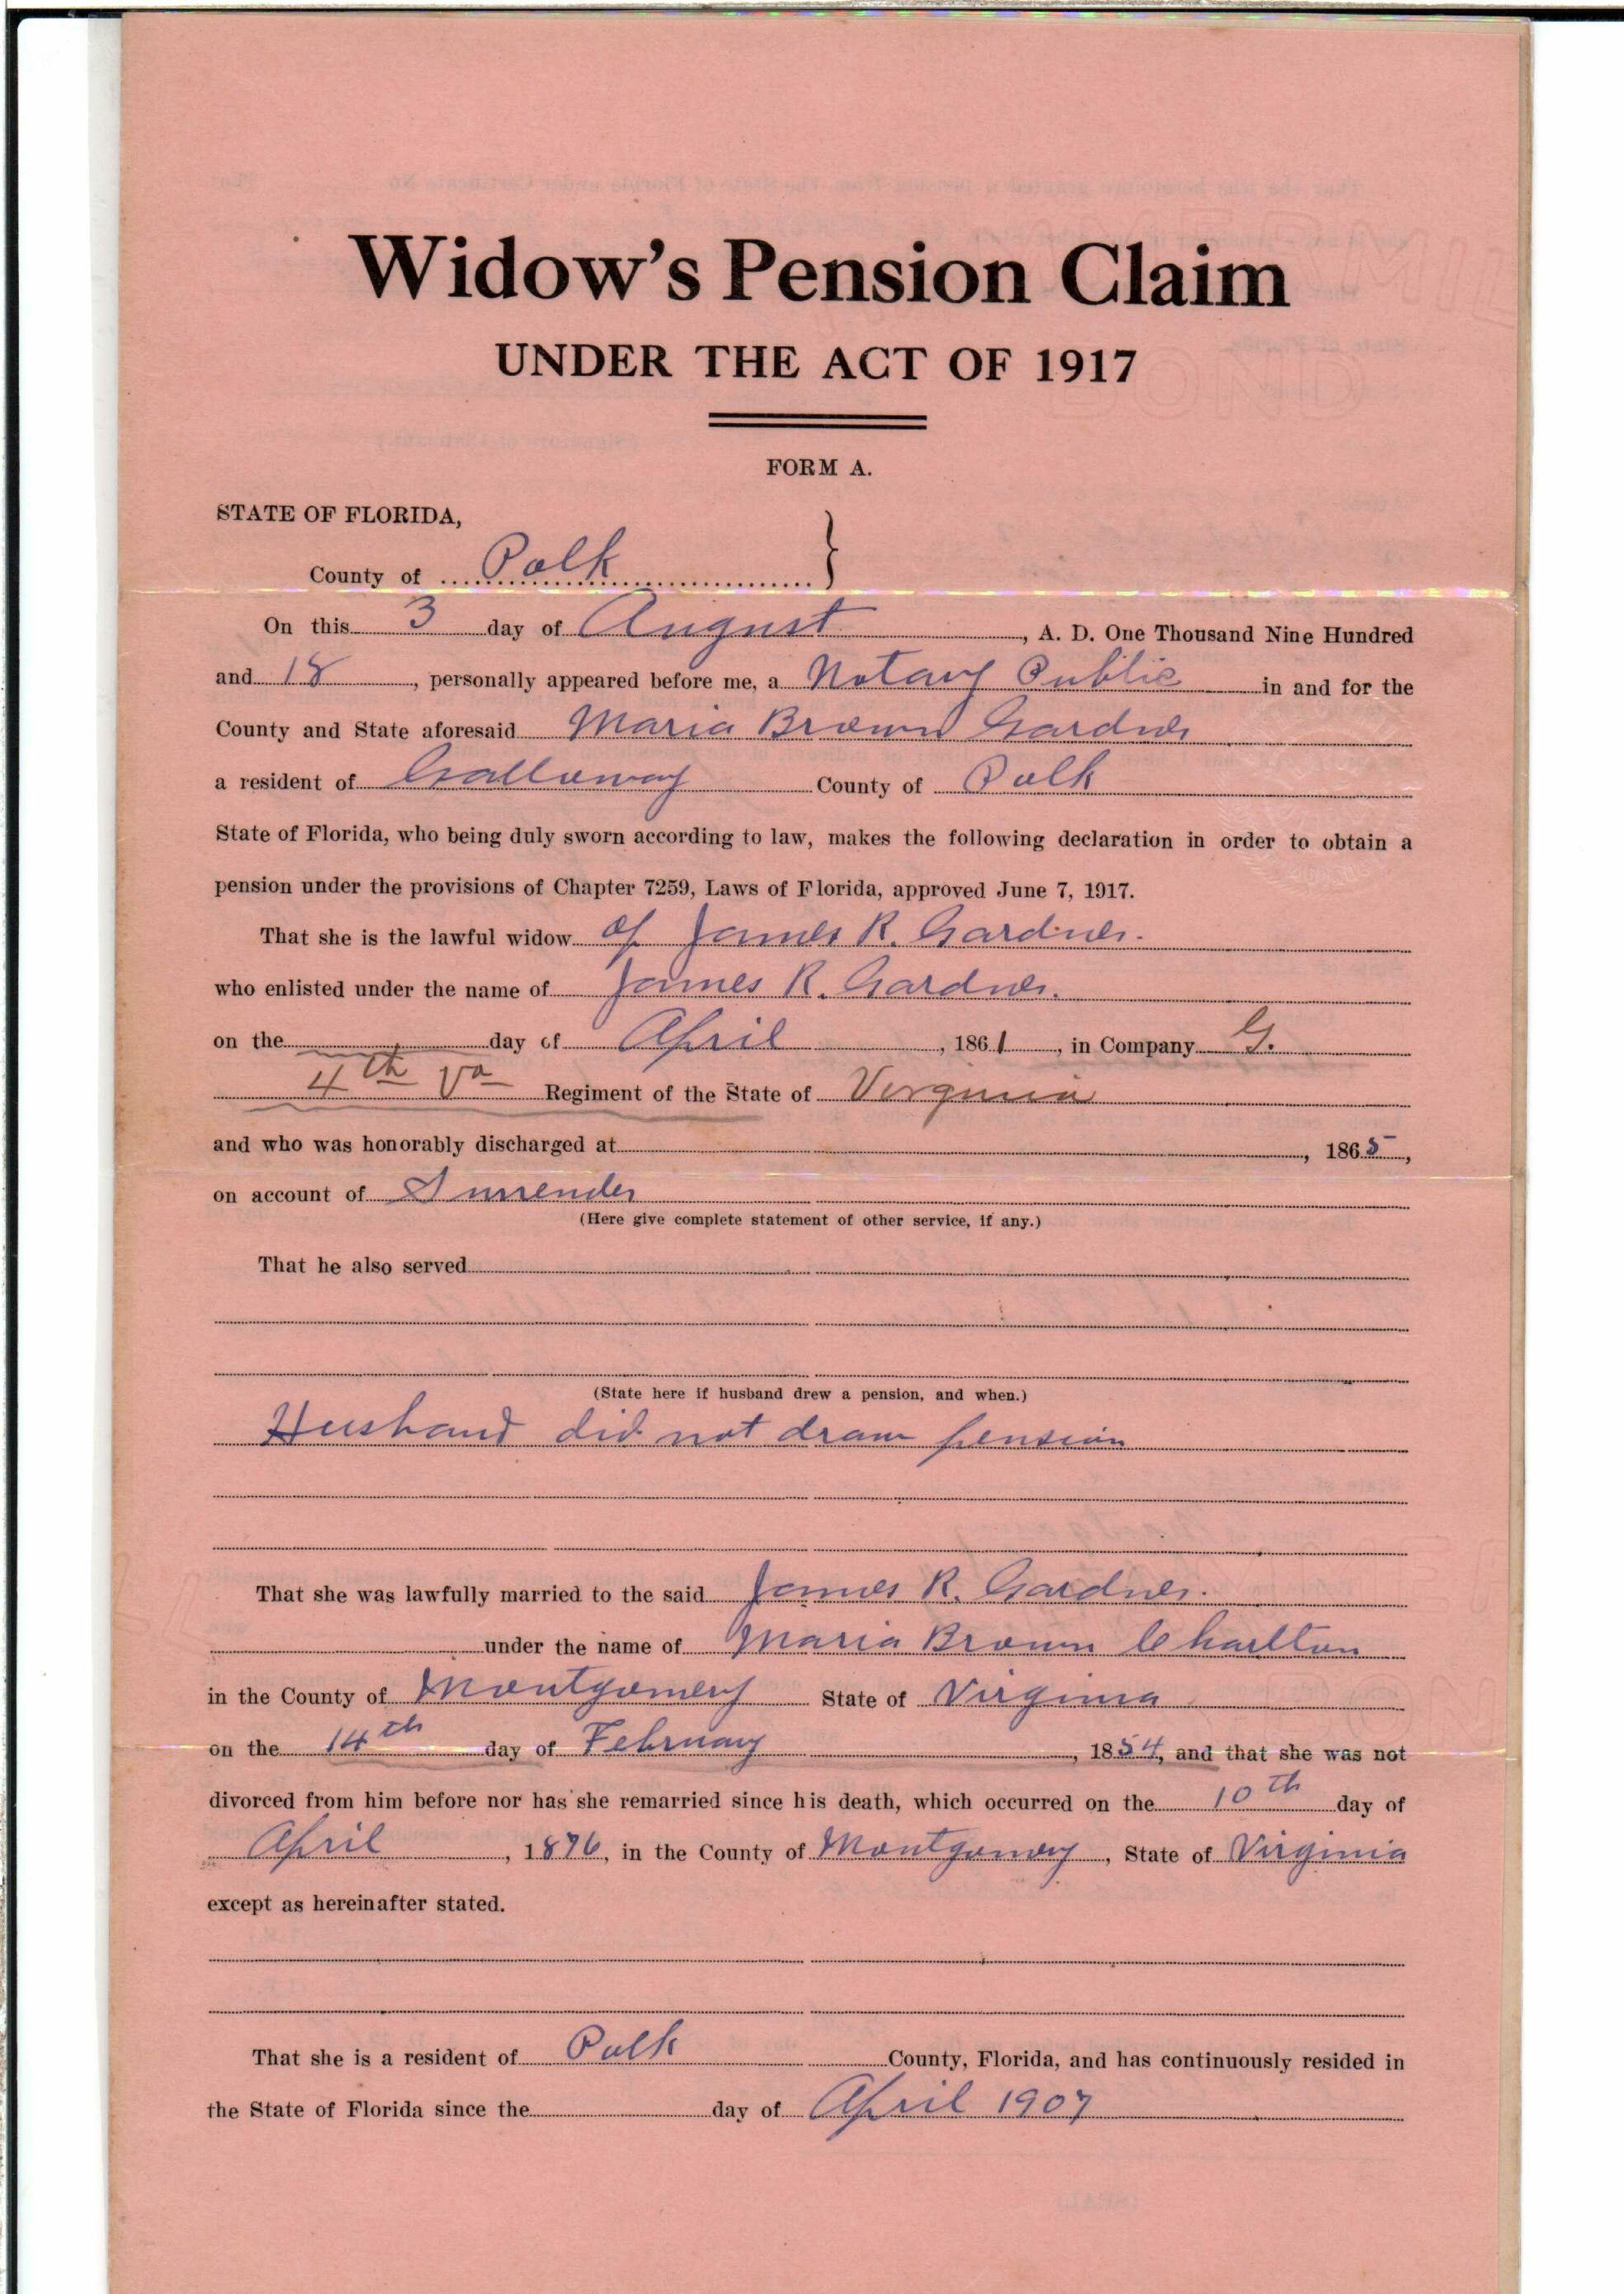 Widow's Pension Claim
UNDER THE ACT OF 1917
FORM A.
STATE OF FLORIDA,
County of Polk }
On this 3 day of August, A. D. One Thousand Nine Hundred
and 18, personally appeared before me, a Notary Public in and for the
County and State aforesaid Maria Brown Gardner
a resident of Galloway County of Polk
State of Florida, who being duly sworn according to law, makes the following declaration in order to obtain a
pension under the provisions of Chapter 7259, Laws of Florida, approved June 7, 1917.
That she is the lawful widow of James R. Gardner.
who enlisted under the name of James R. Gardner.
on the day of April, 1861, in Company G.
4th Va Regiment of the State of Virginia
and who was honorably discharged at, 1865,
on account of Surrender
(Here give complete statement of other service, if any.)
That he also served
(State here if husband drew a pension, and when.)
Husband did not draw pension
That she was lawfully married to the said James R. Gardner.
under the name of Maria Brown Charlton
in the County of Montgomery State of Virginia
on the 14th day of February, 1854, and that she was not
divorced from him before nor has she remarried since his death, which occurred on the 10th day of
April, 1896, in the County of Montgomery, State of Virginia
except as hereinafter stated.
That she is a resident of Polk County, Florida, and has continuously resided in
the State of Florida since the day of April 1907